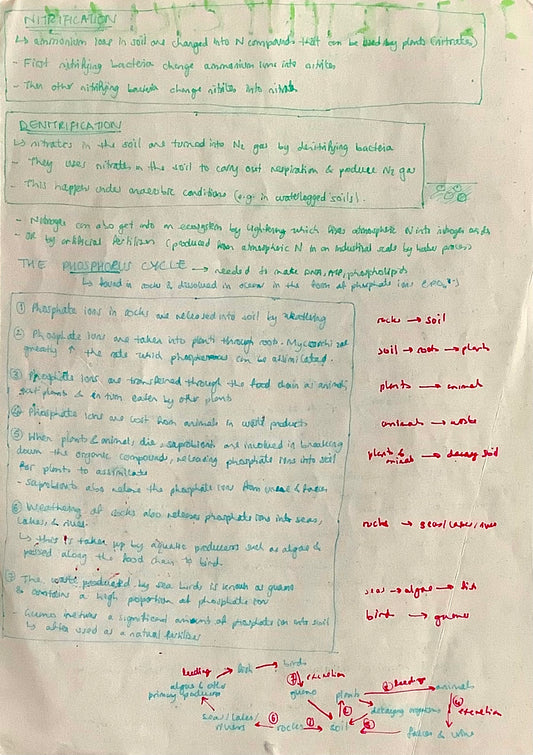 NITRIFICATION
↳ ammonium ions in soil are changed into N compounds that can be used by plants (nitrates)
- First nitrifying bacteria change ammonium ions into nitrites
- Then other nitrifying bacteria change nitrites into nitrates
DENITRIFICATION
↳ nitrates in the soil are turned into N₂ gas by denitrifying bacteria
- They uses nitrates in the soil to carry out respiration & produce N₂ gas
- This happens under anaerobic conditions (e.g. in waterlogged soils).
- Nitrogen can also get into an ecosystem by lightening which fixes atmospheric N into nitrogen oxides
- or by artificial fertilisers (produced from atmospheric N in an industrial scale by haber process)
THE PHOSPHORUS CYCLE → needed to make DNA, ATP, phospholipids
↳ found in rocks & dissolved in ocean in the form of phosphate ions (PO₄³⁻)
① Phosphate ions in rocks are released into soil by weathering
rocks → soil
② Phosphate ions are taken into plants through roots. Mycorrhizae
greatly ↑ the rate which phosphorus can be assimilated.
soil → roots → plants
③ Phosphate ions are transferred through the food chain as animals
eat plants & in turn eaten by other plants
plants → animals
④ Phosphate ions are lost from animals in waste products
animals → waste
⑤ When plants & animals die, saprobionts are involved in breaking
down the organic compounds, releasing phosphate ions into soil
for plants to assimilate
plants & animals → decay soil
- Saprobionts also release the phosphate ions from urine & faeces
⑥ Weathering of rocks also releases phosphate ions into seas,
lakes, & rivers.
rocks → seas/lakes/rivers
↳ this is taken up by aquatic producers such as algae &
passed along the food chain to birds.
⑦ The waste produced by sea birds is known as guano
& contains a high proportion of phosphate ions
seas → algae → fish
bird → guano
- Guano returns a significant amount of phosphate ions into soil
↳ often used as a natural fertiliser
feeding → fish → birds
algae & other
primary producers
⑦ excretion
guano
plants
feeding
animals
decaying organisms
④ excretion
seas/lakes/
rivers
⑥
rocks
①
soil
⑤
faeces & urine